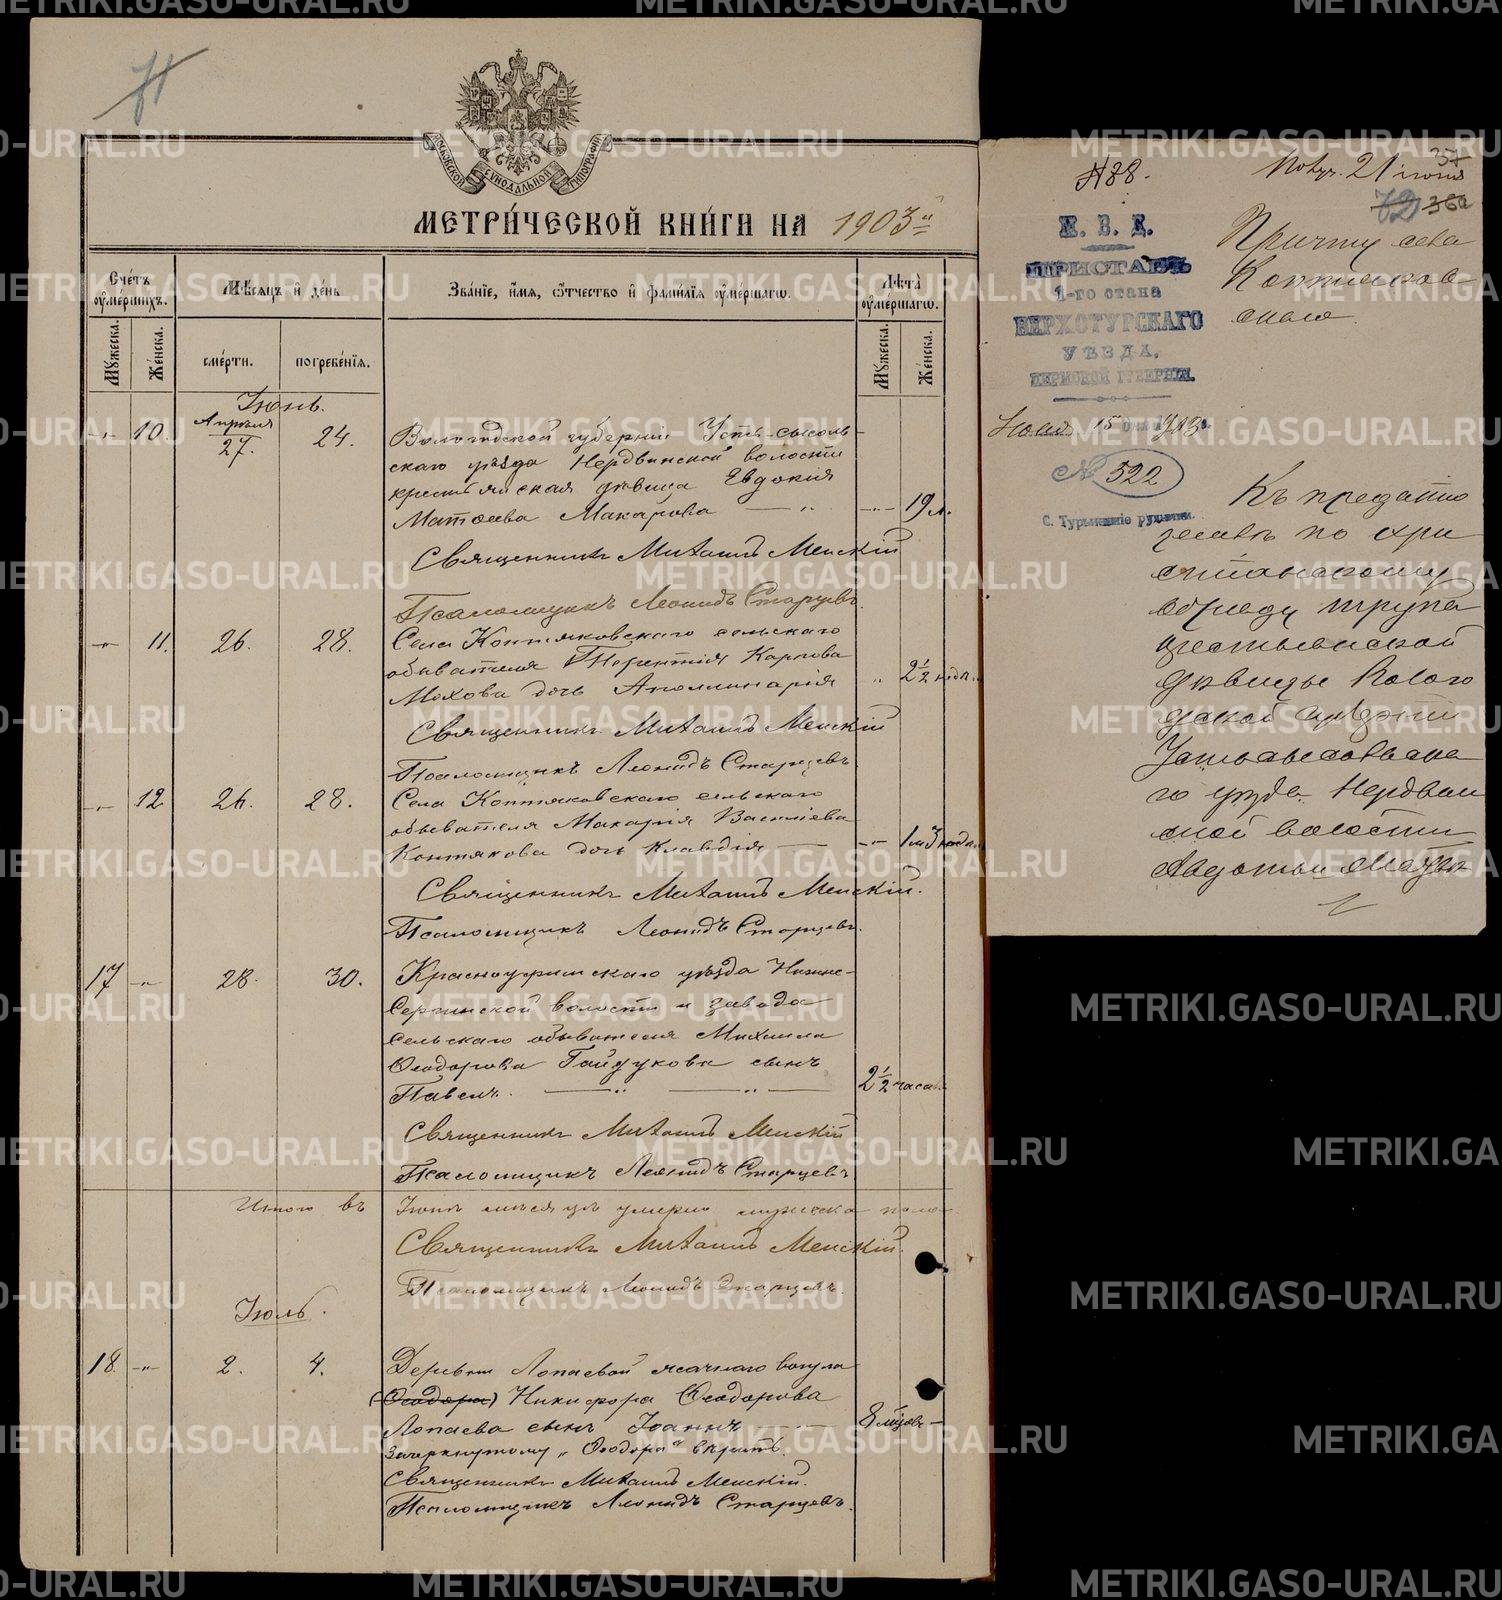 71
МОСКОВСКОЙ СѴНОДАЛЬНОЙ ТИПОГРАФІИ
МЕТРИ́ЧЕСКОЙ КНИ́ГИ НА 1903 й
Сче́тъ оуме́ршихъ.
Мѣсяцъ и де́нь
Зва́ніе, и́мя, ѻ́тчество и фами́лія оуме́ршагѡ.
Лѣта̀ оуме́ршагѡ.
Мꙋжеска.
Же́нска.
сме́рти.
погребе́нія.
Мꙋжеска.
Же́нска.
Іюнь.
-"- 10. Апрѣля 27. 24. Вологодской губерніи Усть-сысоль-
скаго уѣзда Нердвинской волости
крестьянская дѣвица Евдокія
Матѳеева Макарова — " -"- 19 л.
Священникъ Михаилъ Менскій
Псаломщикъ Леонидъ Старцевъ.
-"- 11. 26. 28. Села Коптяковскаго сельскаго
обывателя Терентія Карпова
Мохова дочь Аполлинарія " 2½ недѣл.
Священникъ Михаилъ Менскій
Псаломщикъ Леонидъ Старцевъ
-"- 12 26. 28. Села Коптяковскаго сельскаго
обывателя Макарія Василіева
Коптякова дочь Клавдія — -"- 1 м 3 недѣл.
Священникъ Михаилъ Менскій.
Псаломщикъ Леонидъ Старцевъ.
17 -"- 28. 30. Красноуфимскаго уѣзда Нижне-
Сергинской волости и завода
сельскаго обывателя Михаила
Ѳеодорова Гайдукова сынъ
Павелъ. — " — " — 2½ часа.
Священникъ Михаилъ Менскій
Псаломщикъ Леонидъ Старцевъ
Итого въ Іюнѣ мѣсяцѣ умерло мужеска поло-
Священникъ Михаилъ Менскій.
Псаломщикъ Леонидъ Старцевъ.
Іюль.
18 -"- 2. 4. Деревни Лопаевой ясачнаго вогула
(Ѳеодора) Никифора Ѳеодорова
Лопаева сынъ Іоаннъ — 8 мѣсяц. -
Зачеркнутому „Ѳеодора" вѣрить.
Священникъ Михаилъ Менскій.
Псаломщикъ Леонидъ Старцевъ.
№ 38. Получ. 21 іюня
37
72 36а
М. В. Д.
ПРИСТАВЪ
1-го стана
ВЕРХОТУРСКАГО
УѢЗДА,
ПЕРМСКОЙ ГУБЕРНІИ.
Іюня 15 дня 1903 г.
№ 522
С. Турьинскіе рудники.
Причту села
Коптяков
скаго
Къ преданію
землѣ по хри
стіанскому
обряду трупа
крестьянской
дѣвицы Волого
дской губерніи
Устьсысольска
го уѣзда Нердвин
ской волости
Авдотьи Матвѣ
METRIKI.GASO-URAL.RU